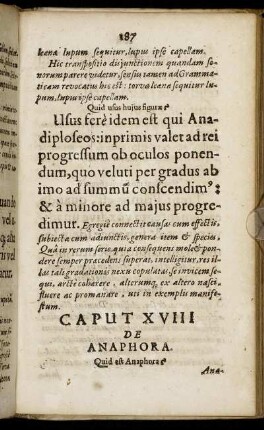 187
leæna lupum sequitur, lupus ipse capellam.
Hic transpositio disjunctionem quandam so-
norum parere videtur, sensus tamen ad Gramma-
ticam revocatus hic est: torva leæna sequitur lu-
pum, lupus ipse capellam.
Quid usus hujus figuræ?
Usus ferè idem est qui Ana-
diploseos: inprimis valet ad rei
progressum ob oculos ponen-
dum, quo veluti per gradus ab
imo ad summũ conscendimꝰ:
& à minore ad majus progre-
dimur. Egregiè connectit causas cum effectis,
subjecta cum adjunctis, genera item & species.
Quâ in rerum serie, quia consequens mole & pon-
dere semper præcedens superat, intelligitur, res il-
las tali gradationis nexu copulatas, se invicem se-
qui, arctè cohærere, alterumq; ex altero nasci,
fluere ac promanare, uti in exemplis manife-
stum.
CAPUT XVIII
DE
ANAPHORA.
Quid est Anaphora?
Ana-